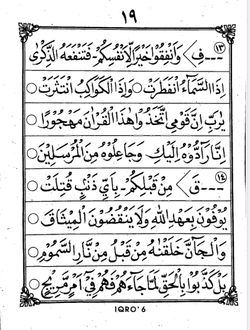 ١٩
١٣ --- فِ) وَأَنْفِقُوْا خَيْرًا لِأَنْفُسِكُمْ - فَتَنْفَعَهُ الذِّكْرٰى
اِذَا السَّمَآءُ انْفَطَرَتْ ○ وَاِذَا الْكَوَاكِبُ انْتَثَرَتْ ○
يٰرَبِّ اِنَّ قَوْمِى اتَّخَذُوْا هٰذَا الْقُرْاٰنَ مَهْجُوْرًا ○
اِنَّا رَآدُّوْهُ اِلَيْكِ وَجَاعِلُوْهُ مِنَ الْمُرْسَلِيْنَ ○
١٤ --- قِ) مِنْ قَبْلِكُمْ - بِاَيِّ ذَنْبٍ قُتِلَتْ ○
يُوْفُوْنَ بِعَهْدِ اللّٰهِ وَلَا يَنْقُضُوْنَ الْمِيْثَاقَ ○
وَالْجَآنَّ خَلَقْنٰهُ مِنْ قَبْلُ مِنْ نَّارِ السَّمُوْمِ ○
بَلْ كَذَّبُوْا بِالْحَقِّ لَمَّا جَآءَهُمْ فَهُمْ فِيْٓ اَمْرٍ مَّرِيْجٍ ○
IQRO' 6